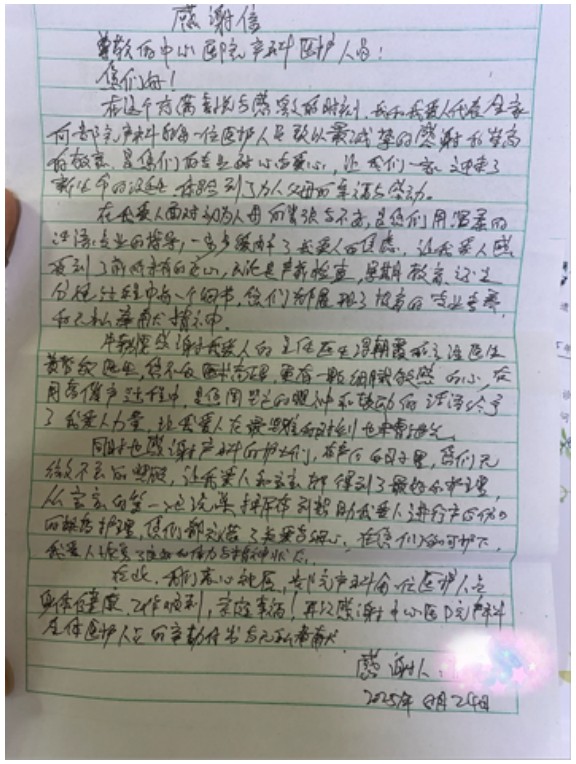 感谢信
尊敬的中心医院产科医护人员：
您们好！
在这个充满喜悦与感激的时刻，我和我爱人代表全家
向贵院产科的每一位医护人员致以最诚挚的感谢和崇高
的敬意，是您们的专业耐心与爱心，让我们一家迎来了
新生命的诞生，体验到了为人父母的幸福与感动。
在我爱人面对初为人母的紧张与不安，是您们用温柔的
话语，专业的指导，一步步缓解了我爱人的焦虑，让我爱人感
受到了前所未有的安心，无论是产前检查，孕期教育，还是
分娩过程中每一个细节，您们都展现了极高的专业素养
和无私奉献精神。
特别感谢我爱人的主任医生冯朝霞和主治医生
医生，您不仅医术高超，更有一颗细腻敏感的心，在
用药催产过程中，是您用坚定的眼神和鼓励的话语给予
了我爱人力量，让我爱人在最艰难的时刻也
同时也感谢产科的护士们，在产后的日子里，您们无
微不至的照顾，让我爱人和宝宝都得到了最好的护理，
从宝宝的第一次洗澡 到帮助我爱人进行产后伤口
的 护理，您们都充满了关爱与细心，在您们的呵护下，
我爱人恢复了 体力与精神状态。
在此，我们衷心祝愿，贵院产科每一位医护人员
身体健康，工作顺利，家庭幸福！再次感谢中心医院产科
全体医护人员的辛勤付出与无私奉献
感谢人：
2025年 月24日